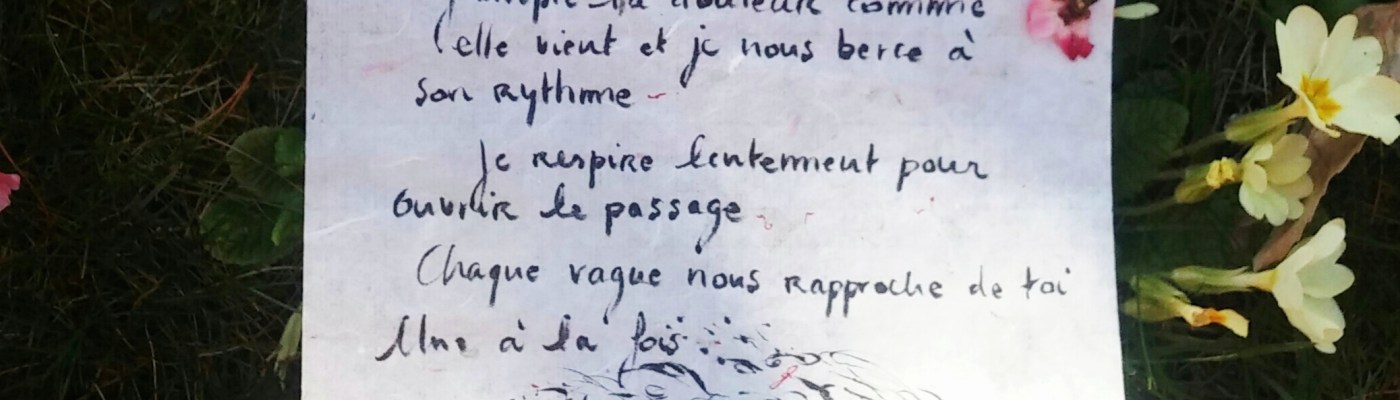 la douleur comme
elle vient et je nous berce à
son rythme
Je respire lentement pour
ouvrir le passage
Chaque vague nous rapproche de toi
Une à la fois...